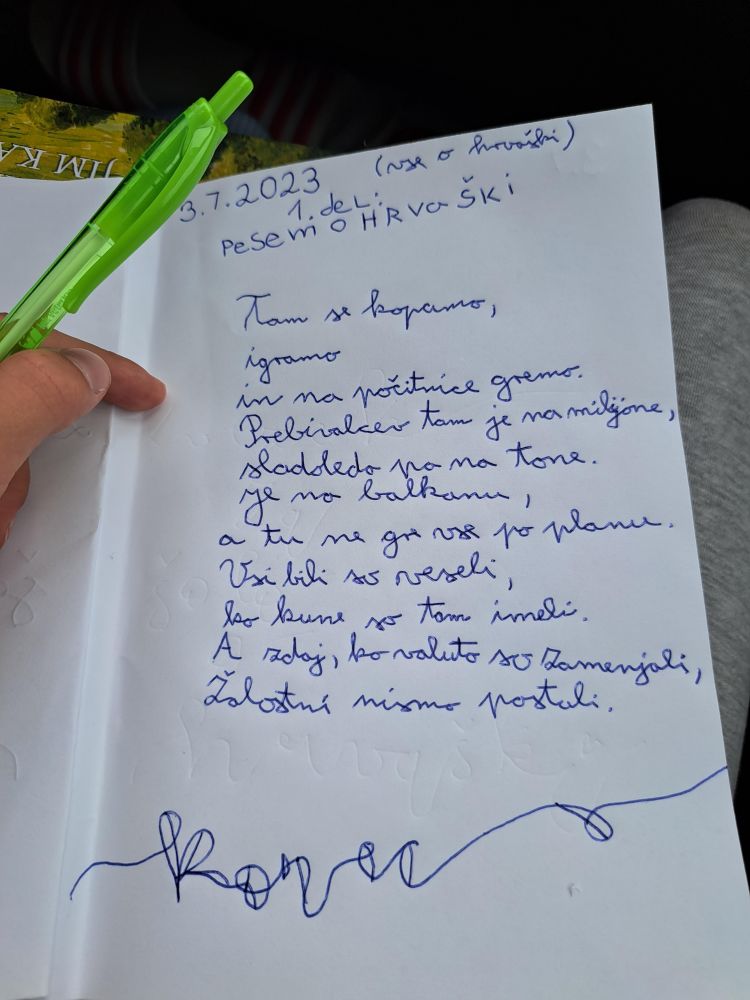 JIM KA
3.7.2023
(vse o hrvaški)
1. DEL:
PESEM O HRVAŠKI
Tam se kopamo,
igramo
in na počitnice gremo.
Prebivalcev tam je na milijone,
sladoleda pa na tone.
Je na balkanu,
a tu ne gre vse po planu.
Vsi bili so veseli,
ko kune so tam imeli.
A zdaj, ko valuto so zamenjali,
Žalostni nismo postali.
Konec